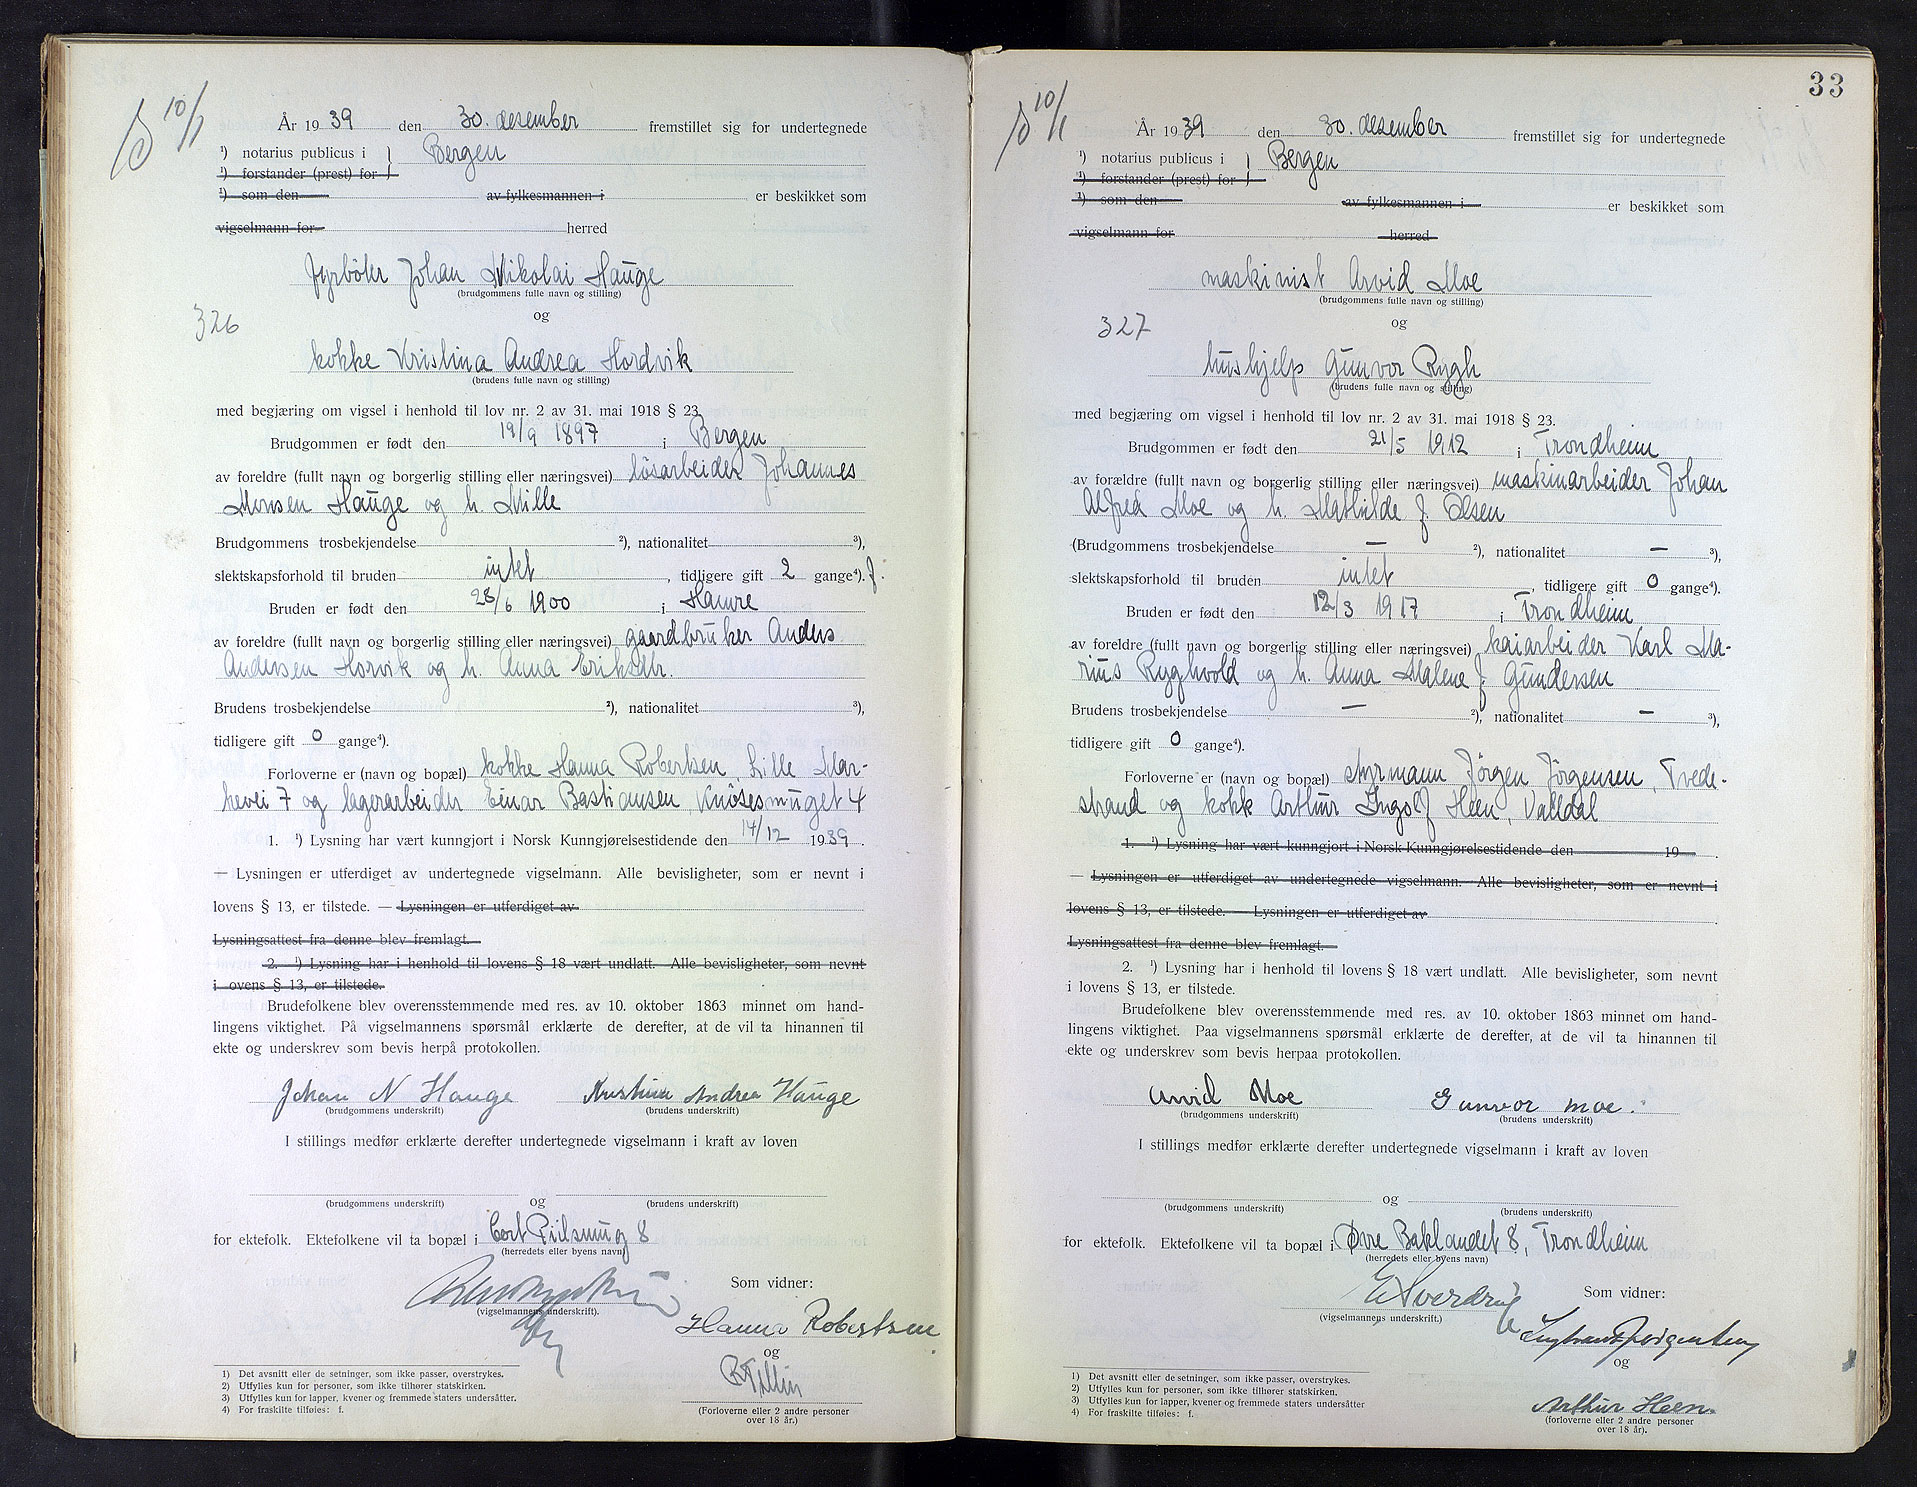 10/1
År 1939 den 30. desember fremstillet sig for undertegnede
¹) notarius publicus i } Bergen
¹) forstander (prest) for
¹) som den av fylkesmannen i er beskikket som
vigselmann for herred
fyrbøter Johan Nikolai Hauge
(brudgommens fulle navn og stilling)
326
og
kokke Kristina Andrea Hordvik
(brudens fulle navn og stilling)
med begjæring om vigsel i henhold til lov nr. 2 av 31. mai 1918 § 23.
Brudgommen er født den 19/9 1897 i Bergen
av foreldre (fullt navn og borgerlig stilling eller næringsvei) løsarbeider Johannes
Monsen Hauge og h. Mille
Brudgommens trosbekjendelse ²), nationalitet ³),
slektskapsforhold til bruden intet, tidligere gift 2 gange⁴). f.
Bruden er født den 28/6 1900 i Hamre
av foreldre (fullt navn og borgerlig stilling eller næringsvei) gaardbruker Anders
Andersen Horvik og h. Anna Eriksdtr.
Brudens trosbekjendelse ²), nationalitet ³),
tidligere gift 0 gange⁴).
Forloverne er (navn og bopæl) kokke Hanna Robertsen, Lille Mar-
kevei 7 og lagerarbeider Einar Bastiansen, Knøsesmuget 4
1. ¹) Lysning har vært kunngjort i Norsk Kunngjørelsestidende den 14/12 1939.
— Lysningen er utferdiget av undertegnede vigselmann. Alle bevisligheter, som er nevnt i
lovens § 13, er tilstede. — Lysningen er utferdiget av
Lysningsattest fra denne blev fremlagt.
2. ¹) Lysning har i henhold til lovens § 18 vært undlatt. Alle bevisligheter, som nevnt
i ovens § 13, er tilstede.
Brudefolkene blev overensstemmende med res. av 10. oktober 1863 minnet om hand-
lingens viktighet. På vigselmannens spørsmål erklærte de derefter, at de vil ta hinannen til
ekte og underskrev som bevis herpå protokollen.
Johan N Hauge Kristina Andrea Hauge
(brudgommens underskrift) (brudens underskrift)
I stillings medfør erklærte derefter undertegnede vigselmann i kraft av loven
og
(brudgommens underskrift) (brudens underskrift)
for ektefolk. Ektefolkene vil ta bopæl i Cort Piilsmug 8
(herredets eller byens navn)
Som vidner:
(vigselmannens underskrift).
Hanna Robertsen
og
(Forloverne eller 2 andre personer
over 18 år.)
1) Det avsnitt eller de setninger, som ikke passer, overstrykes.
2) Utfylles kun for personer, som ikke tilhører statskirken.
3) Utfylles kun for lapper, kvener og fremmede staters undersåtter.
4) For fraskilte tilføies: f.
33
10/1
År 1939 den 30. desember fremstillet sig for undertegnede
¹) notarius publicus i } Bergen
¹) forstander (prest) for
¹) som den av fylkesmannen i er beskikket som
vigselmann for herred
maskinist Arvid Moe
(brudgommens fulle navn og stilling)
327
og
hushjelp Gunvor Rygh
(brudens fulle navn og stilling)
med begjæring om vigsel i henhold til lov nr. 2 av 31. mai 1918 § 23.
Brudgommen er født den 21/5 1912 i Trondheim
av forældre (fullt navn og borgerlig stilling eller næringsvei) maskinarbeider Johan
Alfred Moe og h. Mathilde f. Olsen
(Brudgommens trosbekjendelse — ²), nationalitet — ³),
slektskapsforhold til bruden intet, tidligere gift 0 gange⁴).
Bruden er født den 12/3 1917 i Trondheim
av foreldre (fullt navn og borgerlig stilling eller næringsvei) kaiarbeider Karl Ma-
rius Ryghvold og h. Anna Malene f. Gundersen
Brudens trosbekjendelse — ²), nationalitet — ³),
tidligere gift 0 gange⁴).
Forloverne er (navn og bopæl) styrmann Jörgen Jörgensen, Tvede-
strand og kokk Arthur Ingolf Heen, Valldal
1. ¹) Lysning har vært kunngjort i Norsk Kunngjørelsestidende den 19 .
— Lysningen er utferdiget av undertegnede vigselmann. Alle bevisligheter, som er nevnt i
lovens § 13, er tilstede. — Lysningen er utferdiget av
Lysningsattest fra denne blev fremlagt.
2. ¹) Lysning har i henhold til lovens § 18 vært undlatt. Alle bevisligheter, som nevnt
i lovens § 13, er tilstede.
Brudefolkene blev overensstemmende med res. av 10. oktober 1863 minnet om hand-
lingens viktighet. Paa vigselmannens spørsmål erklærte de derefter, at de vil ta hinannen til
ekte og underskrev som bevis herpaa protokollen.
Arvid Moe Gunvor Moe.
(brudgommens underskrift) (brudens underskrift)
I stillings medfør erklærte derefter undertegnede vigselmann i kraft av loven
og
(brudgommens underskrift) (brudens underskrift)
for ektefolk. Ektefolkene vil ta bopæl i Øvre Baklandet 8, Trondheim
(herredets eller byens navn)
E Sverdrup
Som vidner:
(vigselmannens underskrift.)
og
Arthur Heen.
(forloverne eller 2 andre personer
over 18 år).
1) Det avsnitt eller de setninger, som ikke passer, overstrykes.
2) Utfylles kun for personer, som ikke tilhører statskirken.
3) Utfylles kun for lapper, kvener og fremmede staters undersåtter
4) For fraskilte tilføies: f.